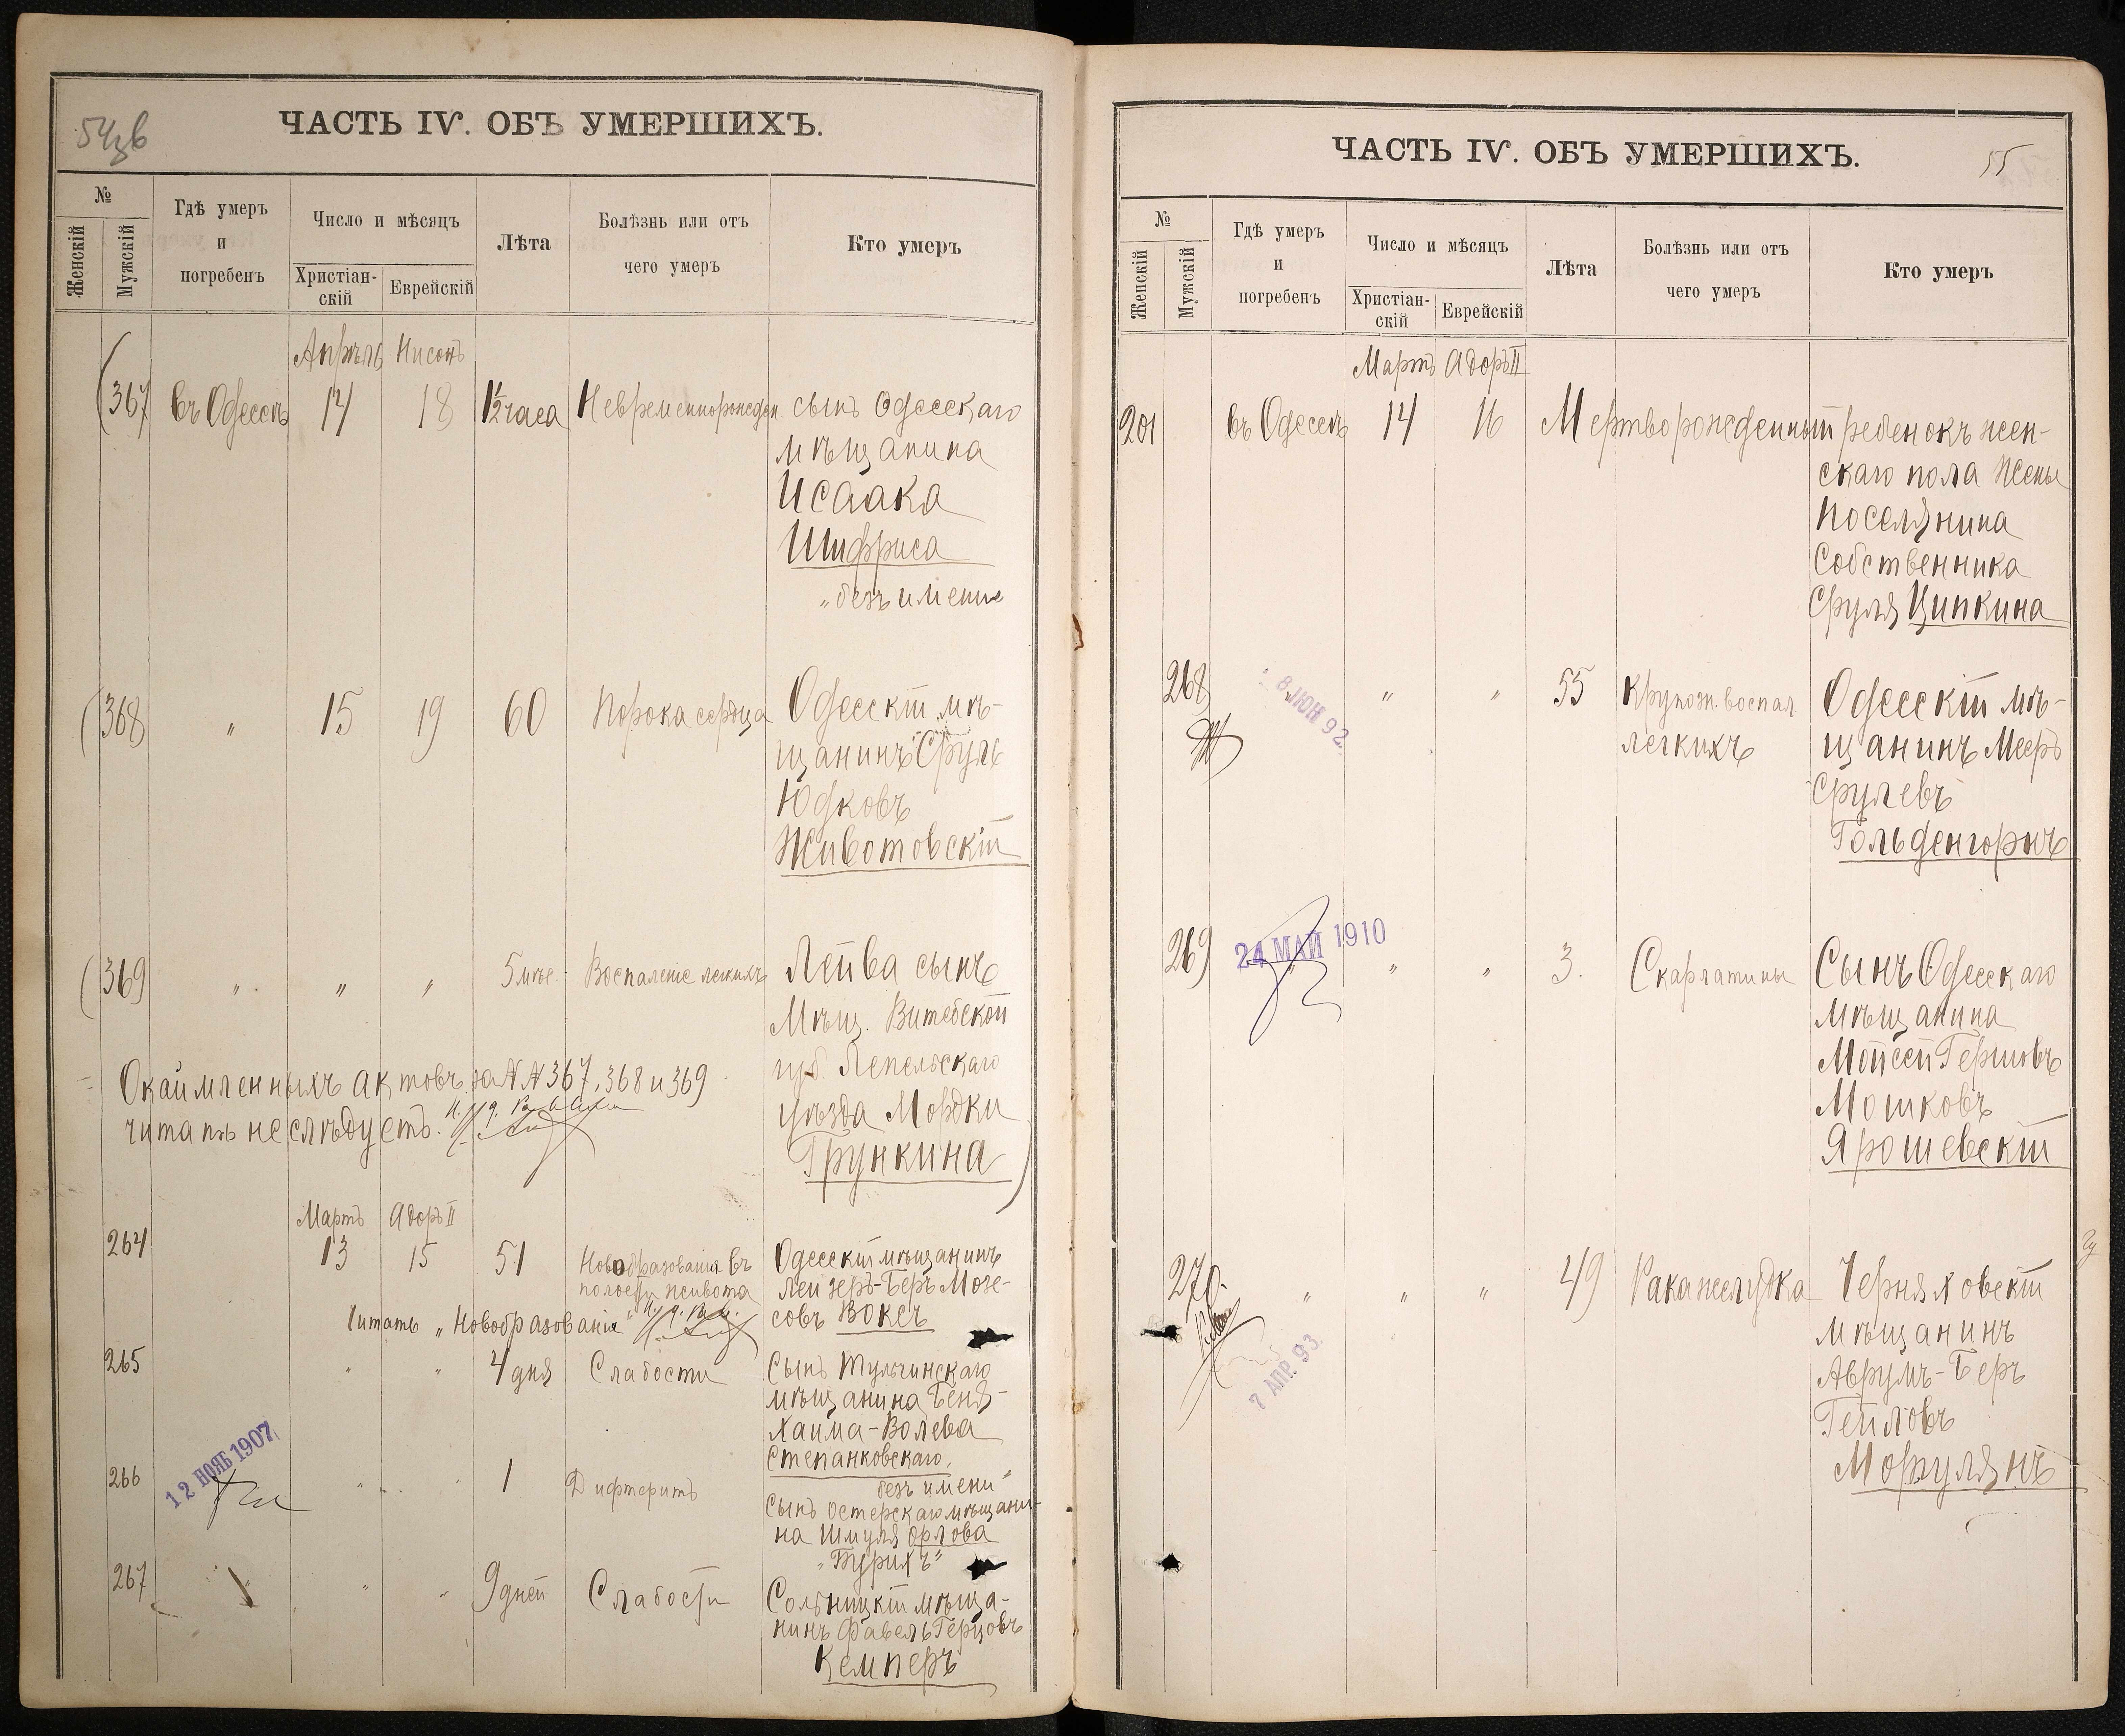 54 об
ЧАСТЬ IV. ОБЪ УМЕРШИХЪ.
№
Женскій
Мужскій
Гдѣ умеръ
и
погребенъ
Число и мѣсяцъ
Христіан-
скій
Еврейскій
Лѣта
Болѣзнь или отъ
чего умеръ
Кто умеръ
Апрѣль Нисонъ
367 въ Одессѣ 14 18 1½ часа Невременнорожден. сынъ Одесскаго
мѣщанина
Исаака
Шифриса
„безъ имение
368 „ 15 19 60 Порока сердца Одесскій мѣ-
щанинъ Сруль
Юдковъ
Животовскій
369 „ „ „ 5 мѣс. Воспаленіе легкихъ Лейва сынъ
Мѣщ. Витебской
губ. Лепельскаго
уѣзда Мордки
Грункина
Окаймленныхъ актовъ за NN 367, 368 и 369
читать не слѣдуетъ.
Мартъ Адоръ II
264 13 15 51 Новообразованія въ
полости живота
Одесскій мѣщанинъ
Лейзеръ-Беръ Мозе-
совъ Воксъ
Читать „Новообразованія"
265 „ „ 4 дня Слабости Сынъ Тульчинскаго
мѣщанина Беня-
Хаима-Волева
Степанковскаго,
безъ имени"
266 12 НОЯБ 1907 „ „ 1 Дифтеритъ
Сынъ Остерскаго мѣщани-
на Шмуля Орлова
„Бурихъ"
267 „ „ „ 9 дней Слабости Сольницкій мѣща-
нинъ Фавель Герцовъ
Кемперъ
ЧАСТЬ IV. ОБЪ УМЕРШИХЪ.
55
№
Женскій
Мужскій
Гдѣ умеръ
и
погребенъ
Число и мѣсяцъ
Христіан-
скій
Еврейскій
Лѣта
Болѣзнь или отъ
чего умеръ
Кто умеръ
Мартъ Адоръ II
201 въ Одессѣ 14 16 Мертворожденный ребенокъ жен-
скаго пола Жены
поселянина
Собственника
Сруля Ципкина
268 8 ИЮН 92. „ „ 55 Крупозн. воспал.
легкихъ
Одесскій мѣ-
щанинъ Мееръ
Срулевъ
Гольденгорнъ
269 24 МАЙ 1910 „ „ „ 3. Скарлатины Сынъ Одесскаго
мѣщанина
Мойсей Гершовъ
Мошковъ
Ярошевскій
270. „ „ „ 49 Рака желудка Черняховскій
мѣщанинъ
Аврумъ-Беръ
Гейловъ
Морулянъ
7 АПР. 93.